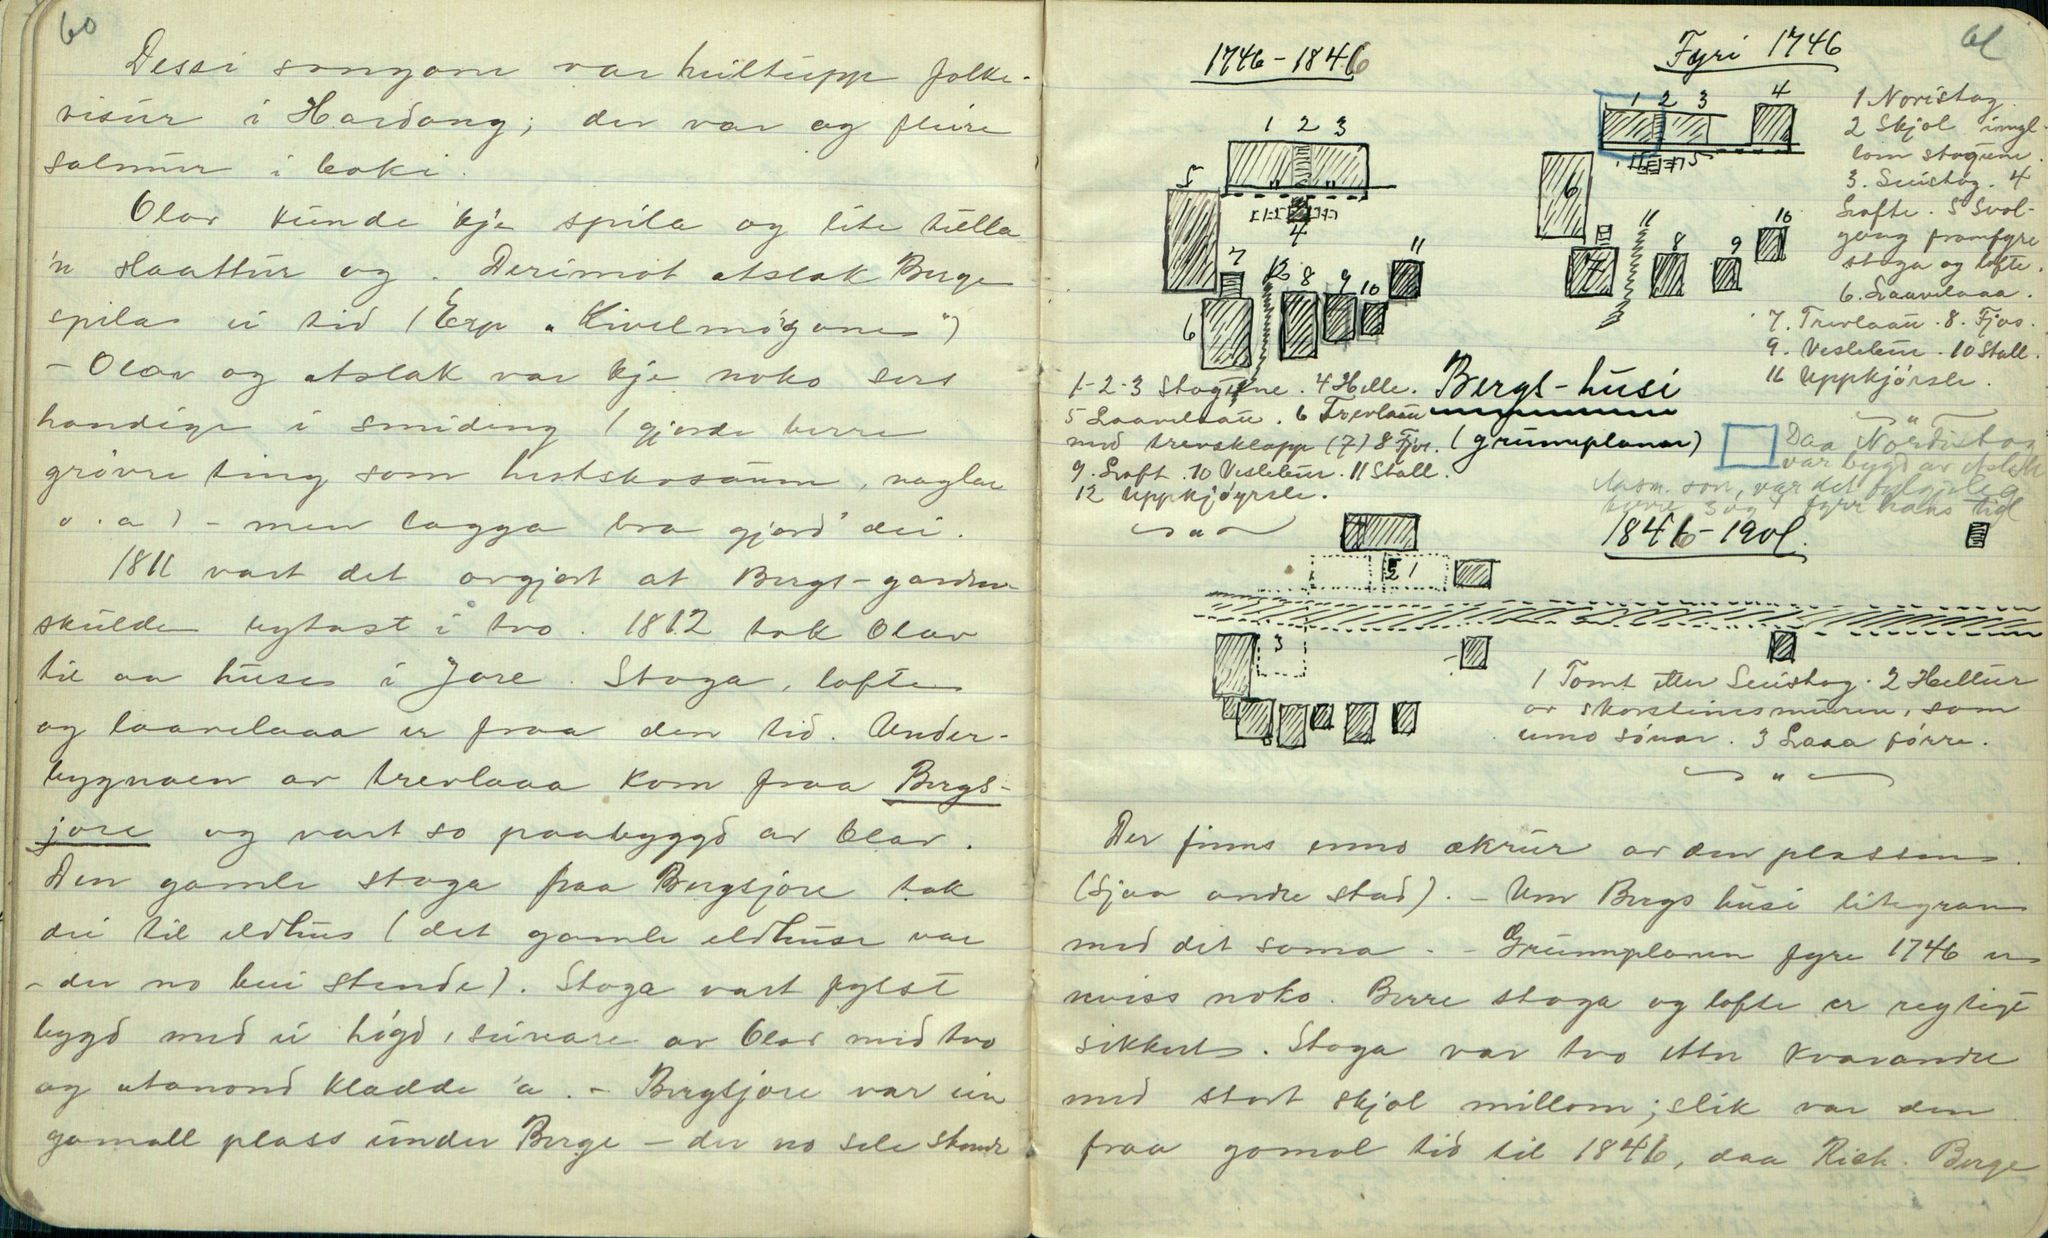 60
Dessi songane var heiltupp folke-
visur i Hardang; der var og fleire
salmur i boki.
Olav kunde kje spila og lite tulla
'n slaattur og. Derimot Aslak Berge
spila ei tid (Erp "Kivelmøyane")
- Olav og Aslak var kje noko sers
handige i smiding (gjorde berre
grøvre ting som hestskosaum, naglar
o. a) - men lagga bra gjord' dei.
1811 vart det avgjort at Bergs-garden
skulde bytast i tvo. 1812 tok Olav
til aa huse i Jore. Stoga, lofte
og laavelaaa er fraa den tid. Under-
bygnaen av trevlaaa kom fraa Bergs-
jore og vart so paabyggd av Olav.
Den gamle stoga fraa Bergsjore tok
dei til eldhus (det gamle eldhuse var
- der no bui stende). Stoga vart fyrst
bygd med ei høgd, seinare av Olav med tvo
og utanond kladde 'a. - Bergsjore var ein
gamall plass under Berge - der no sele stende
61
1746-1846
1 2 3
5
4
7 12 8 9 10 11
6
1-2-3 Stogune. 4 Helle.
5 Laavelaau. 6 Trevlaau
med trevsklopp (7) 8 Fjos.
9. Loft. 10 Veslebur. 11 Stall.
12 Uppkjøyrsle.
Bergs-husi
(grunnplanar)
Fyri 1746
1 2 3 4
5
6
7 11 8 9 10
1 Noristog.
2 Skjol imyl-
lom stogune.
3. Suistog. 4
Lofte. 5 Sval-
gang framfyre
stoga og lofte.
6. Laavelaaa.
7. Trevlaau. 8. Fjos.
9. Veslebur. 10 Stall.
11 Uppkjørsle.
Daa Nordistog
var bygd av Aslak
Aasm. son, var det
fyrr hans tid
1846-1901.
2 1
3
1 Tomt etter Suistog. 2 Hellur
av skorsteinsmuren, som
enno sónar. 3 Laaa førre.
Der finns enno akrur av den plassen.
(Sjaa andre stad). - Um Bergs husi litegran
med det soma. - Grunnplanen fyre 1746 er
uviss noko. Berre stoga og lofte er regtigt
sikkert. Stoga var tvo etter kvarandre
med stort skjol millom; slik var den
fraa gamal tid til 1846, daa Rich. Berge